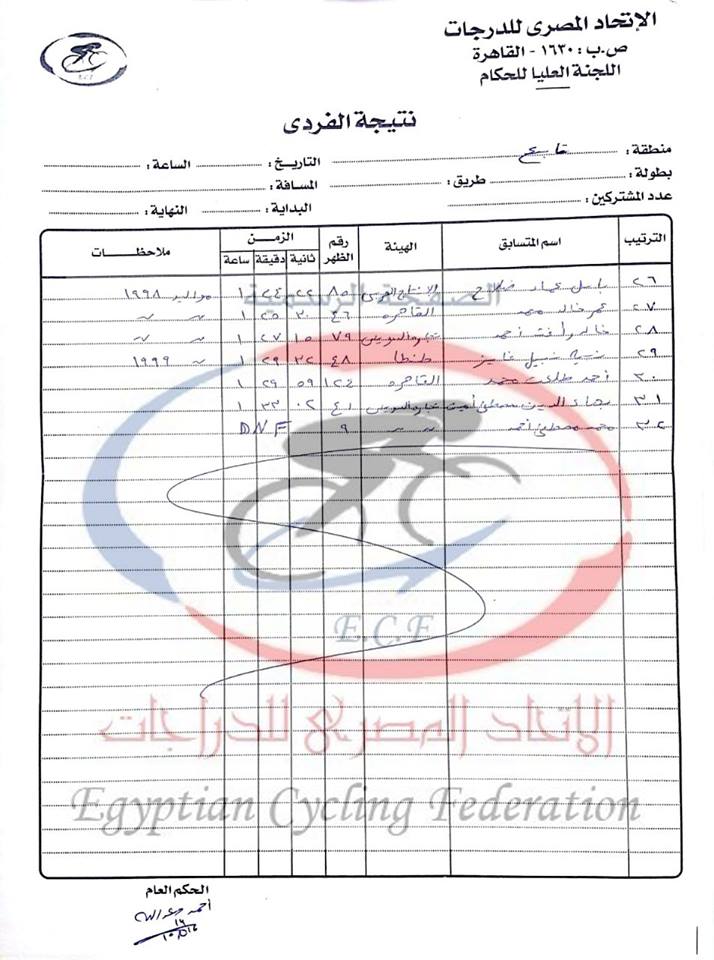 الإتحاد المصرى للدرجات
ص.ب : ١٦٣٠ - القاهرة
اللجنة العليا للحكام
E.C.F
نتيجة الفردى
منطقة : تابع التاريخ : الساعة :
بطولة : طريق : المسافة :
عدد المشتركين : البداية : النهاية :
الترتيب اسم المتسابق الهيئة رقم الظهر الزمن ملاحظات
ثانية دقيقة ساعة
٢٦ باسل عماد صلاح الانتاج الحربى ٨٥ ٢٢ ٢٤ ١ مواليد ١٩٩٨
٢٧ عمر خالد محمد القاهره ٤٦ ٣٠ ٢٥ ١ ~ ~
٢٨ خالد رأفت أحمد السويس ٧٩ ١٥ ٢٧ ١ ~ ~
٢٩ نبيل فايز طنطا ٤٨ ٣٢ ٢٩ ١ ~ ١٩٩٩
٣٠ أحمد طلعت محمد القاهره ١٢٤ ٥٩ ٢٩ ١
٣١ بهاء الدين مصطفى أمين السويس ٤١ ٠٢ ٣٣ ١
٣٢ محمد مصطفى أحمد ~ ~ ٩ DNF
الصفحة الرسمية
E.C.F
الإتحاد المصرى للدراجات
Egyptian Cycling Federation
الحكم العام
أحمد